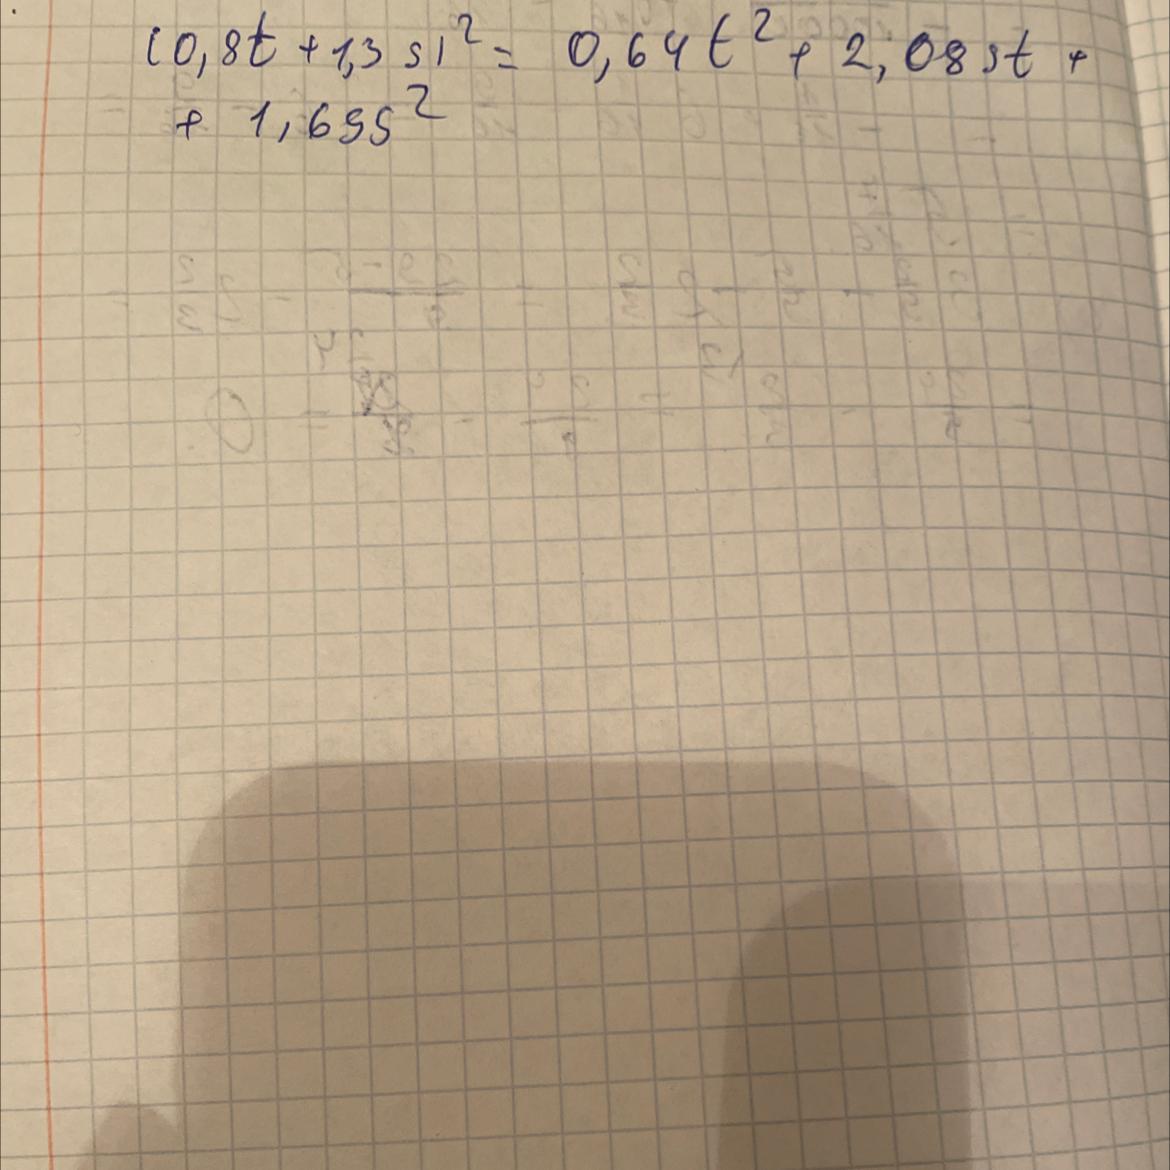 (0,8t + 1,3 s)² = 0,64 t² + 2,08 st +
+ 1,69s²